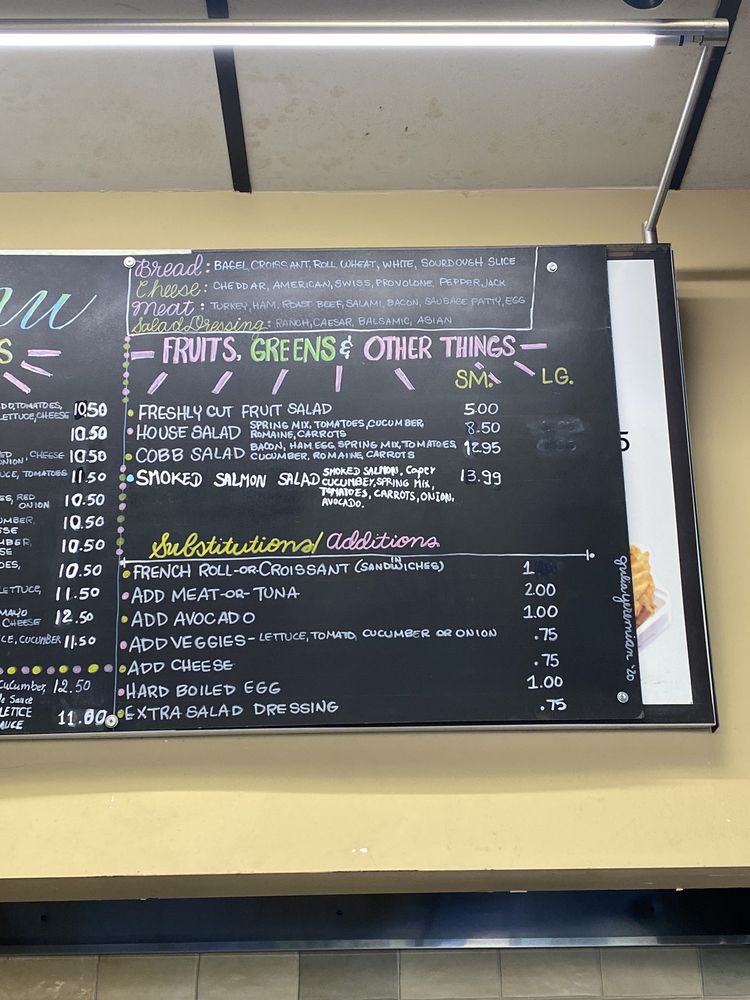 Bread: BAGEL, CROISSANT, ROLL, WHEAT, WHITE, SOURDOUGH SLICE
Cheese: CHEDDAR, AMERICAN, SWISS, PROVOLONE, PEPPER JACK
Meat: TURKEY, HAM, ROAST BEEF, SALAMI, BACON, SAUSAGE PATTY, EGG
Salad Dressing: RANCH, CAESAR, BALSAMIC, ASIAN
FRUITS, GREENS & OTHER THINGS
SM. LG.
FRESHLY CUT FRUIT SALAD 5.00
HOUSE SALAD SPRING MIX, TOMATOES, CUCUMBER, 8.50
ROMAINE, CARROTS
COBB SALAD BACON, HAM, EGG, SPRING MIX, TOMATOES, 12.95
CUCUMBER, ROMAINE, CARROTS
SMOKED SALMON SALAD SMOKED SALMON, Caper 13.99
CUCUMBEY, SPRING MIX,
TOMATOES, CARROTS, ONION,
AVOCADO.
Substitutions/Additions
FRENCH ROLL-OR-CROISSANT (IN SANDWICHES) 1
ADD MEAT-OR-TUNA 2.00
ADD AVOCADO 1.00
ADD VEGGIES- LETTUCE, TOMATO, CUCUMBER OR ONION .75
ADD CHEESE .75
HARD BOILED EGG 1.00
EXTRA SALAD DRESSING .75
S
TOMATOES,
LETTUCE, CHEESE 10.50
10.50
ONION, CHEESE 10.50
TOMATOES 11.50
RED
ONION 10.50
10.50
10.50
10.50
LETTUCE, 11.50
MAYO
CHEESE 12.50
CUCUMBER 11.50
cucumber, 12.50
Sauce
11.00
SAUCE
5
'20